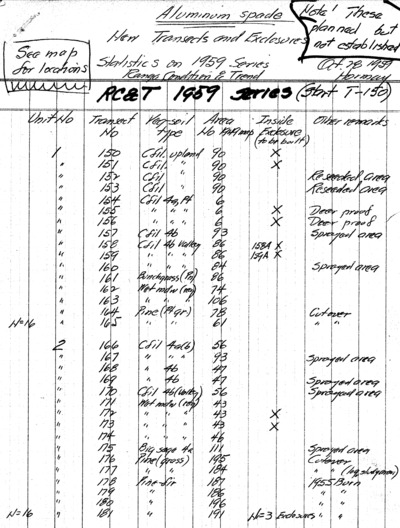 Aluminum spade
Note! These planned but not established
New Transects and Exclosures
See map for locations
Statistics on 1959 Series
Oct 28 1959
Range Condition & Trend
Hormay
RC&T 1959 series (Start T-150)
Unit No Transect No Veg-soil type Area No Inside Exclosure (to be built) Other remarks
1 150 Cfil. upland 90 X
" 151 Cfil. " 90 X
" 152 Cfil " 90 Reseeded area
" 153 Cfil " 90 Reseeded area
" 154 Cfil 4a, Pt 6
" 155 " " " 6 X Deer proof
" 156 " " " 6 X Deer proof
" 157 Cfil 4b 93 Sprayed area
" 158 Cfil 4b Valley 86 158A X
" 159 " " " 86 159A X
" 160 " " 84 Sprayed area
" 161 Bunchgrass 86
" 162 Wet mdw 74
" 163 " " 106
" 164 Pine (Pl gr) 78 Cutover
N=16 " 165 " " 61 " "
2 166 Cfil 4a(b) 56
" 167 " " 93 Sprayed area
" 168 " 4b 47
" 169 " 4b 47 Sprayed area
" 170 Cfil 4b (Valley) 56 Sprayed area
" 171 Wet mdw 43
" 172 " " " 43 X
" 173 " " " 43 X
" 174 " " " 44
" 175 Big sage 4a 111 Sprayed area
" 176 Pine (grass) 195 Cutover
" 177 " " 184 " "
" 178 Pine-fir 187 1955 Burn
" 179 " " 186 " "
" 180 " " 196 " "
N=16 " 181 " " 191 N=3 Exclosures " "